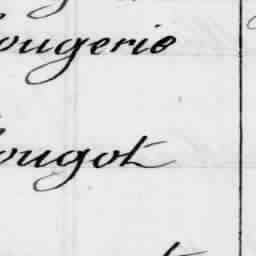 ougerie
ougot